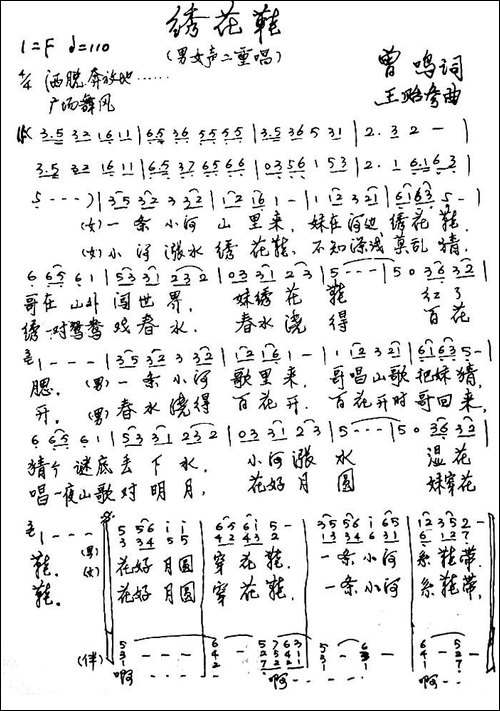 绣花鞋
1=F ♩=110
(男女声二重唱)
4/4 洒脱奔放地……
广场舞风
曾鸣词
王昭誉曲
3.5 32 16 11 | 6.5 36 55 55 | 3.5 36 5 31 | 2. 32 - |
3.5 22 16 11 | 6.5 37 65 66 | 03 56 1 53 | 2. 1 61 63 |
5 - - - ) | 35 32 3 32 | 12 16 1 - | 1 12 3 21 | 61 63 5 - |
(女)一条小河山里来,妹在河边绣花鞋,
(女)小河涨水绣花鞋,不知深浅莫乱猜,
6 65 6 1 | 53 31 23 2 | 03 31 2 3 | 5 - - - | 5 0 36 32 |
哥在山外闯世界,妹绣花鞋红了
绣一对鸳鸯戏春水,春水浇得百花
1 - - - | 35 32 3 32 | 12 16 1 - | 1 12 3 21 | 61 63 5 - |
腮,(男)一条小河歌里来,哥唱山歌把妹猜,
开,(男)春水浇得百花开,百花开时哥回来,
6 65 6 1 | 53 31 23 2 | 03 31 2 3 | 5 - - - | 5 0 36 32 |
猜个谜底丢下水,小河涨水湿花
唱一夜山歌对明月,花好月圆妹穿花
1 - - - 5 56 i i | 65 6i 5 - | 35 56 i 65 | 12 35 2 - |
(男) 3 34 55
鞋。花好月圆穿花鞋,一条小河系鞋带,
(女)
鞋。花好月圆穿花鞋,一条小河系鞋带,
(伴)
啊--- 啊---